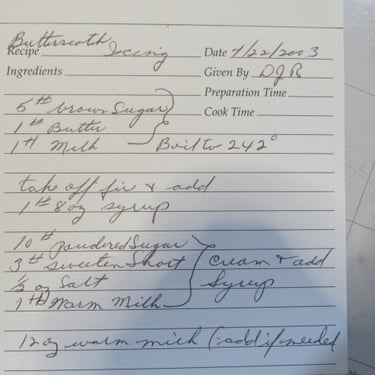 Butterscotch Icing
Recipe Date 7/22/2003
Ingredients Given By DJR
Preparation Time
Cook Time
5# brown Sugar
1# Butter
1# Milk Boil to 242°
take off fire & add
1# 8 oz syrup
10# Powdered Sugar
3# Sweetex Short Cream & add
½ oz Salt Syrup
1# Warm Milk
12 oz warm milk (add if needed